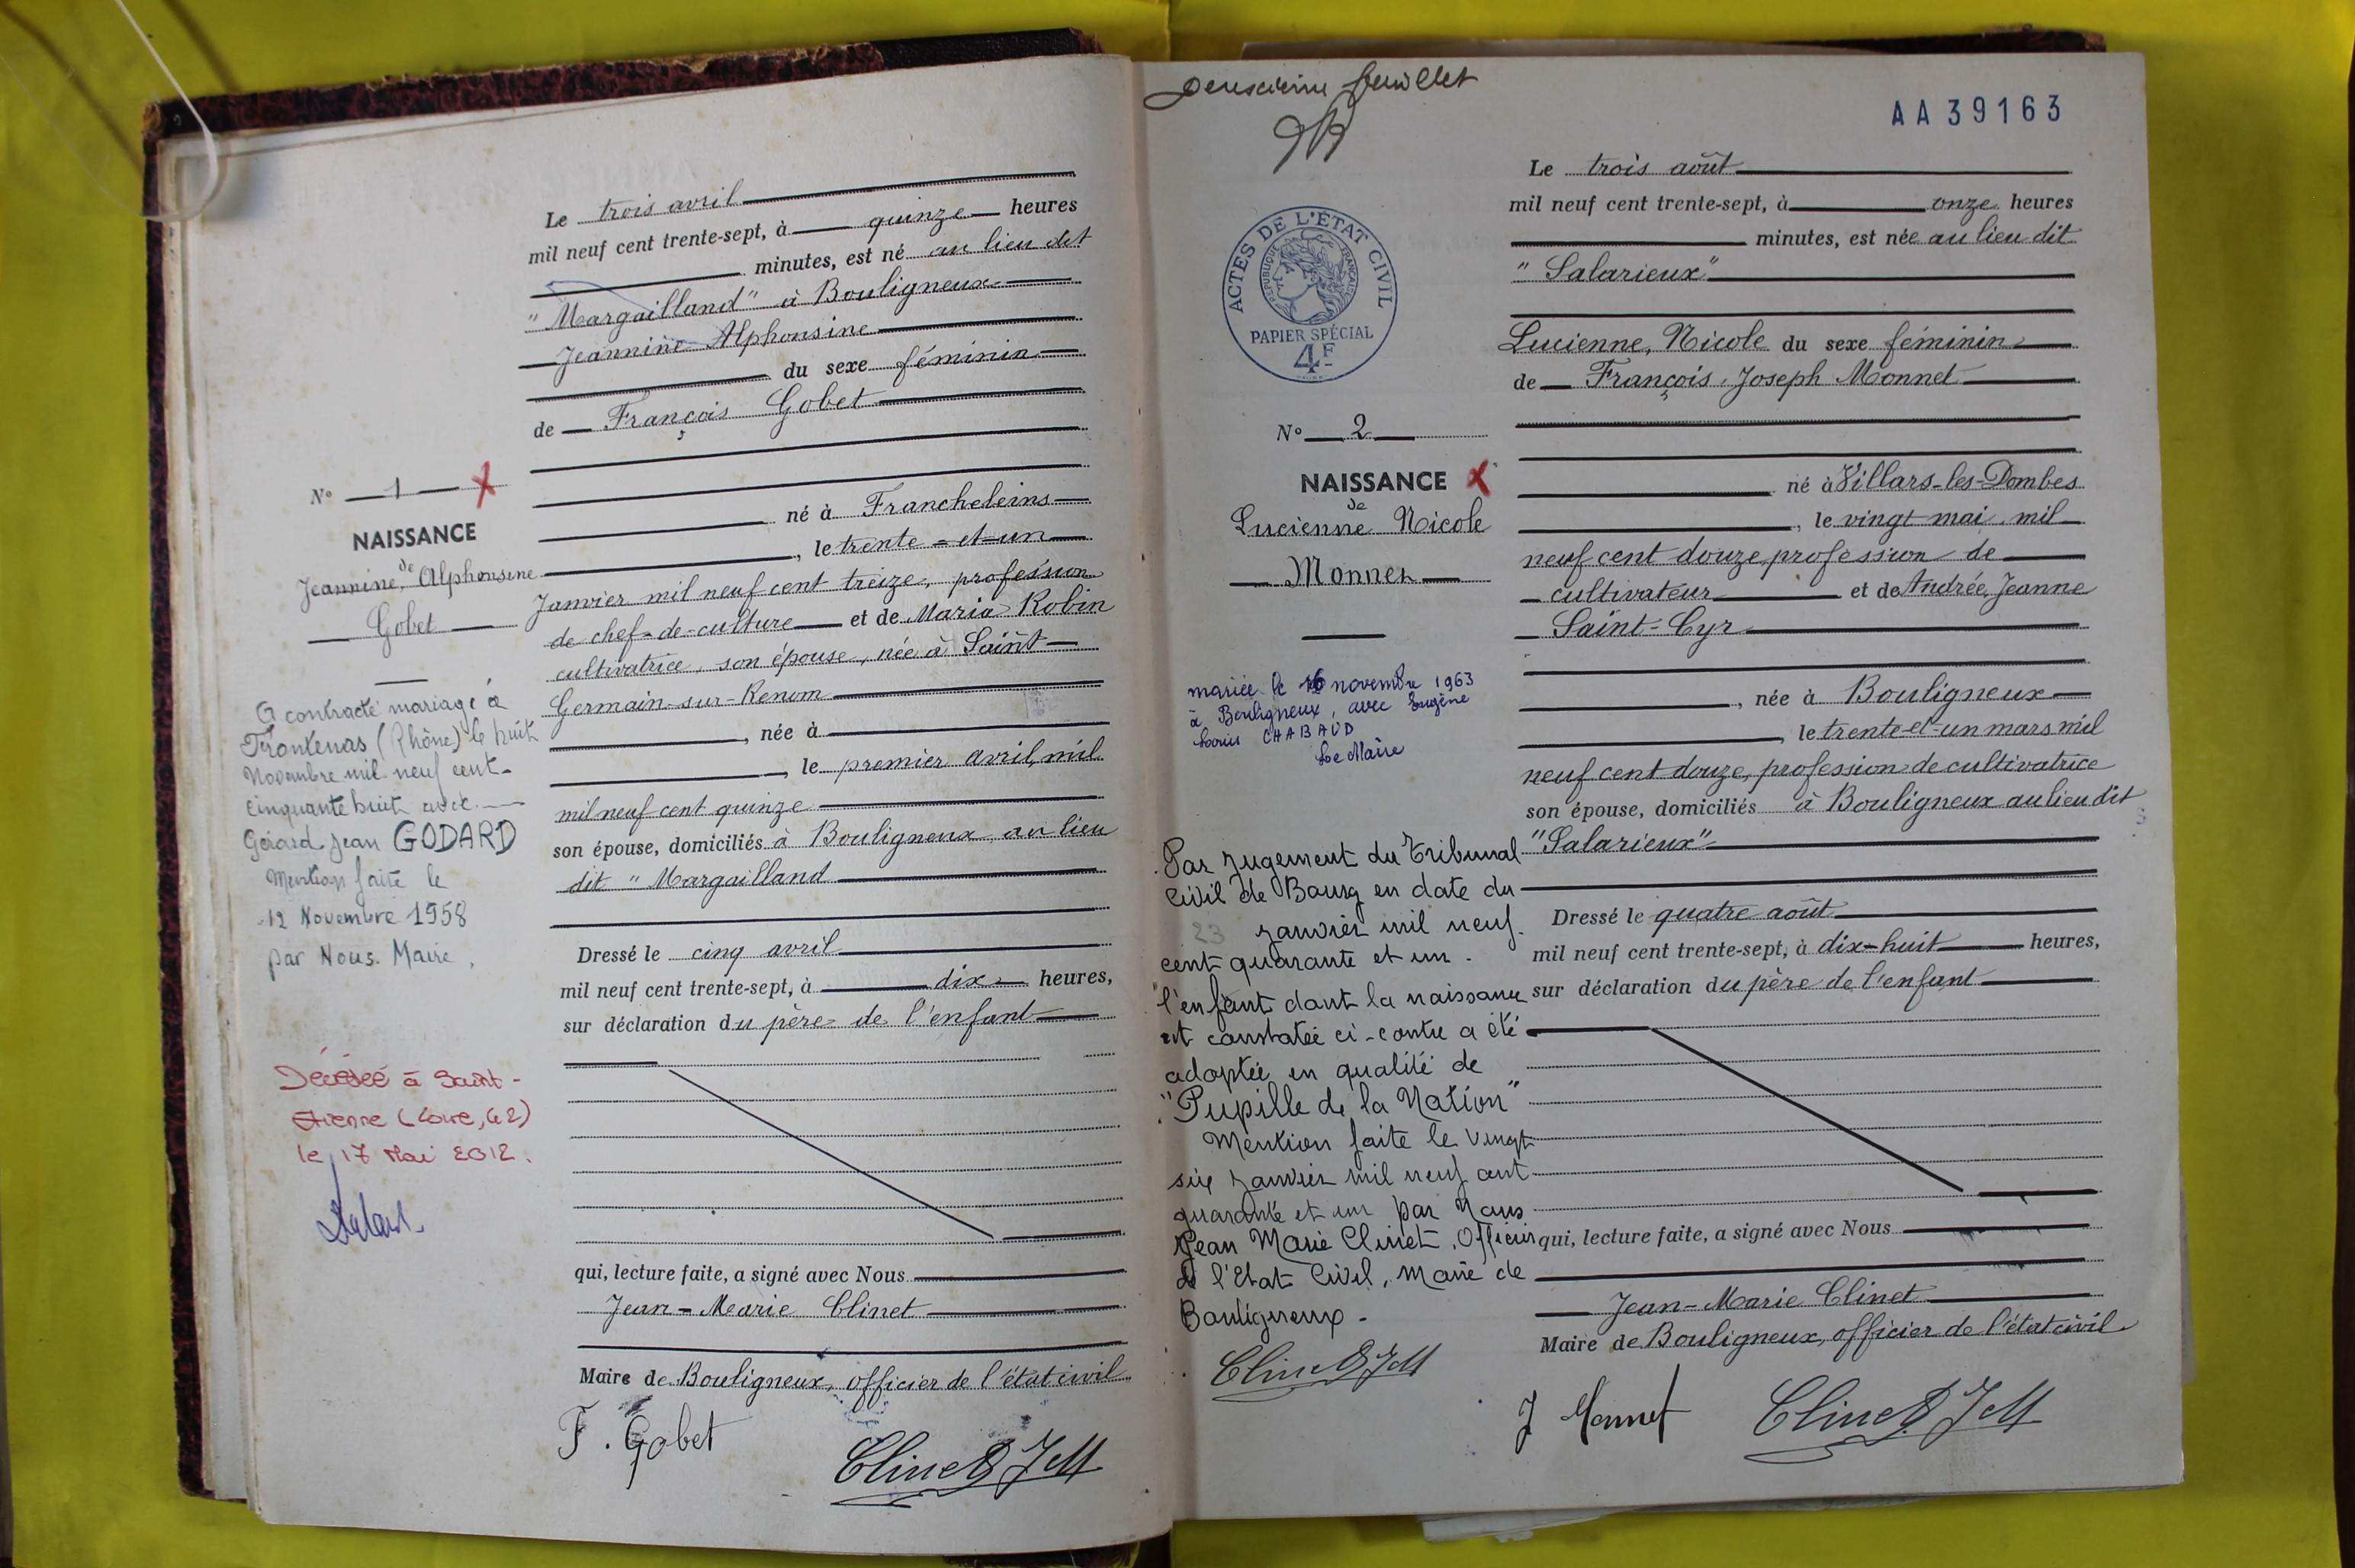 Le trois avril
mil neuf cent trente-sept, à quinze heures
minutes, est né au lieu dit
"Margailland" à Bouligneux
Jeannine Alphonsine
du sexe féminin
de François Gobet
né à Francheleins
, le trente-et-un
Janvier mil neuf cent treize, profession
de chef-de-culture et de Maria Robin
cultivatrice, son épouse, née à Saint
Germain-sur-Renom
, née à
, le premier avril, mil
mil neuf cent quinze
son épouse, domiciliés à Bouligneux, au lieu
dit "Margailland
Dressé le cinq avril
mil neuf cent trente-sept, à dix heures,
sur déclaration du père de l'enfant
qui, lecture faite, a signé avec Nous
Jean-Marie Clinet
Maire de Bouligneux, officier de l'état civil
F. Gobet
Clinet JM
N° 1 X
NAISSANCE
de
Jeannine, Alphonsine
Gobet
A contracté mariage à
Frontenas (Rhône) le huit
Novembre mil neuf cent
cinquante huit avec
Gérard Jean GODARD
Mention faite le
12 Novembre 1958
par Nous. Maire,
Décédée à Saint-
Etienne (Loire, 42)
le 17 Mai 2012.
deuxième feuillet
AA39163
ACTES DE L'ÉTAT CIVIL
RÉPUBLIQUE FRANÇAISE
PAPIER SPÉCIAL
4F
N° 2
NAISSANCE X
de
Lucienne Nicole
Monnet
mariée le 16 novembre 1963
à Bouligneux, avec Eugène
Louis CHABAUD
Le Maire
Par Jugement du Tribunal
Civil de Bourg en date du
23 janvier mil neuf
cent quarante et un.
l'enfant dont la naissance
est constatée ci-contre a été
adoptée en qualité de
"Pupille de la Nation"
Mention faite le vingt
six janvier mil neuf cent
quarante et un par Nous
Jean Marie Clinet, Officier
de l'Etat Civil, Maire de
Bouligneux.
Clinet JM
Le trois août
mil neuf cent trente-sept, à onze heures
minutes, est née au lieu dit
"Salarieux"
Lucienne, Nicole du sexe féminin
de François, Joseph Monnet
né à Villars-les-Dombes
, le vingt mai mil
neuf cent douze, profession de
cultivateur et de Andrée, Jeanne
Saint-Cyr
, née à Bouligneux
, le trente-et-un mars mil
neuf cent douze, profession de cultivatrice
son épouse, domiciliés à Bouligneux au lieu dit
"Salarieux"
Dressé le quatre août
mil neuf cent trente-sept, à dix-huit heures,
sur déclaration du père de l'enfant
qui, lecture faite, a signé avec Nous
Jean-Marie Clinet
Maire de Bouligneux, officier de l'état civil
J Monnet
Clinet JM